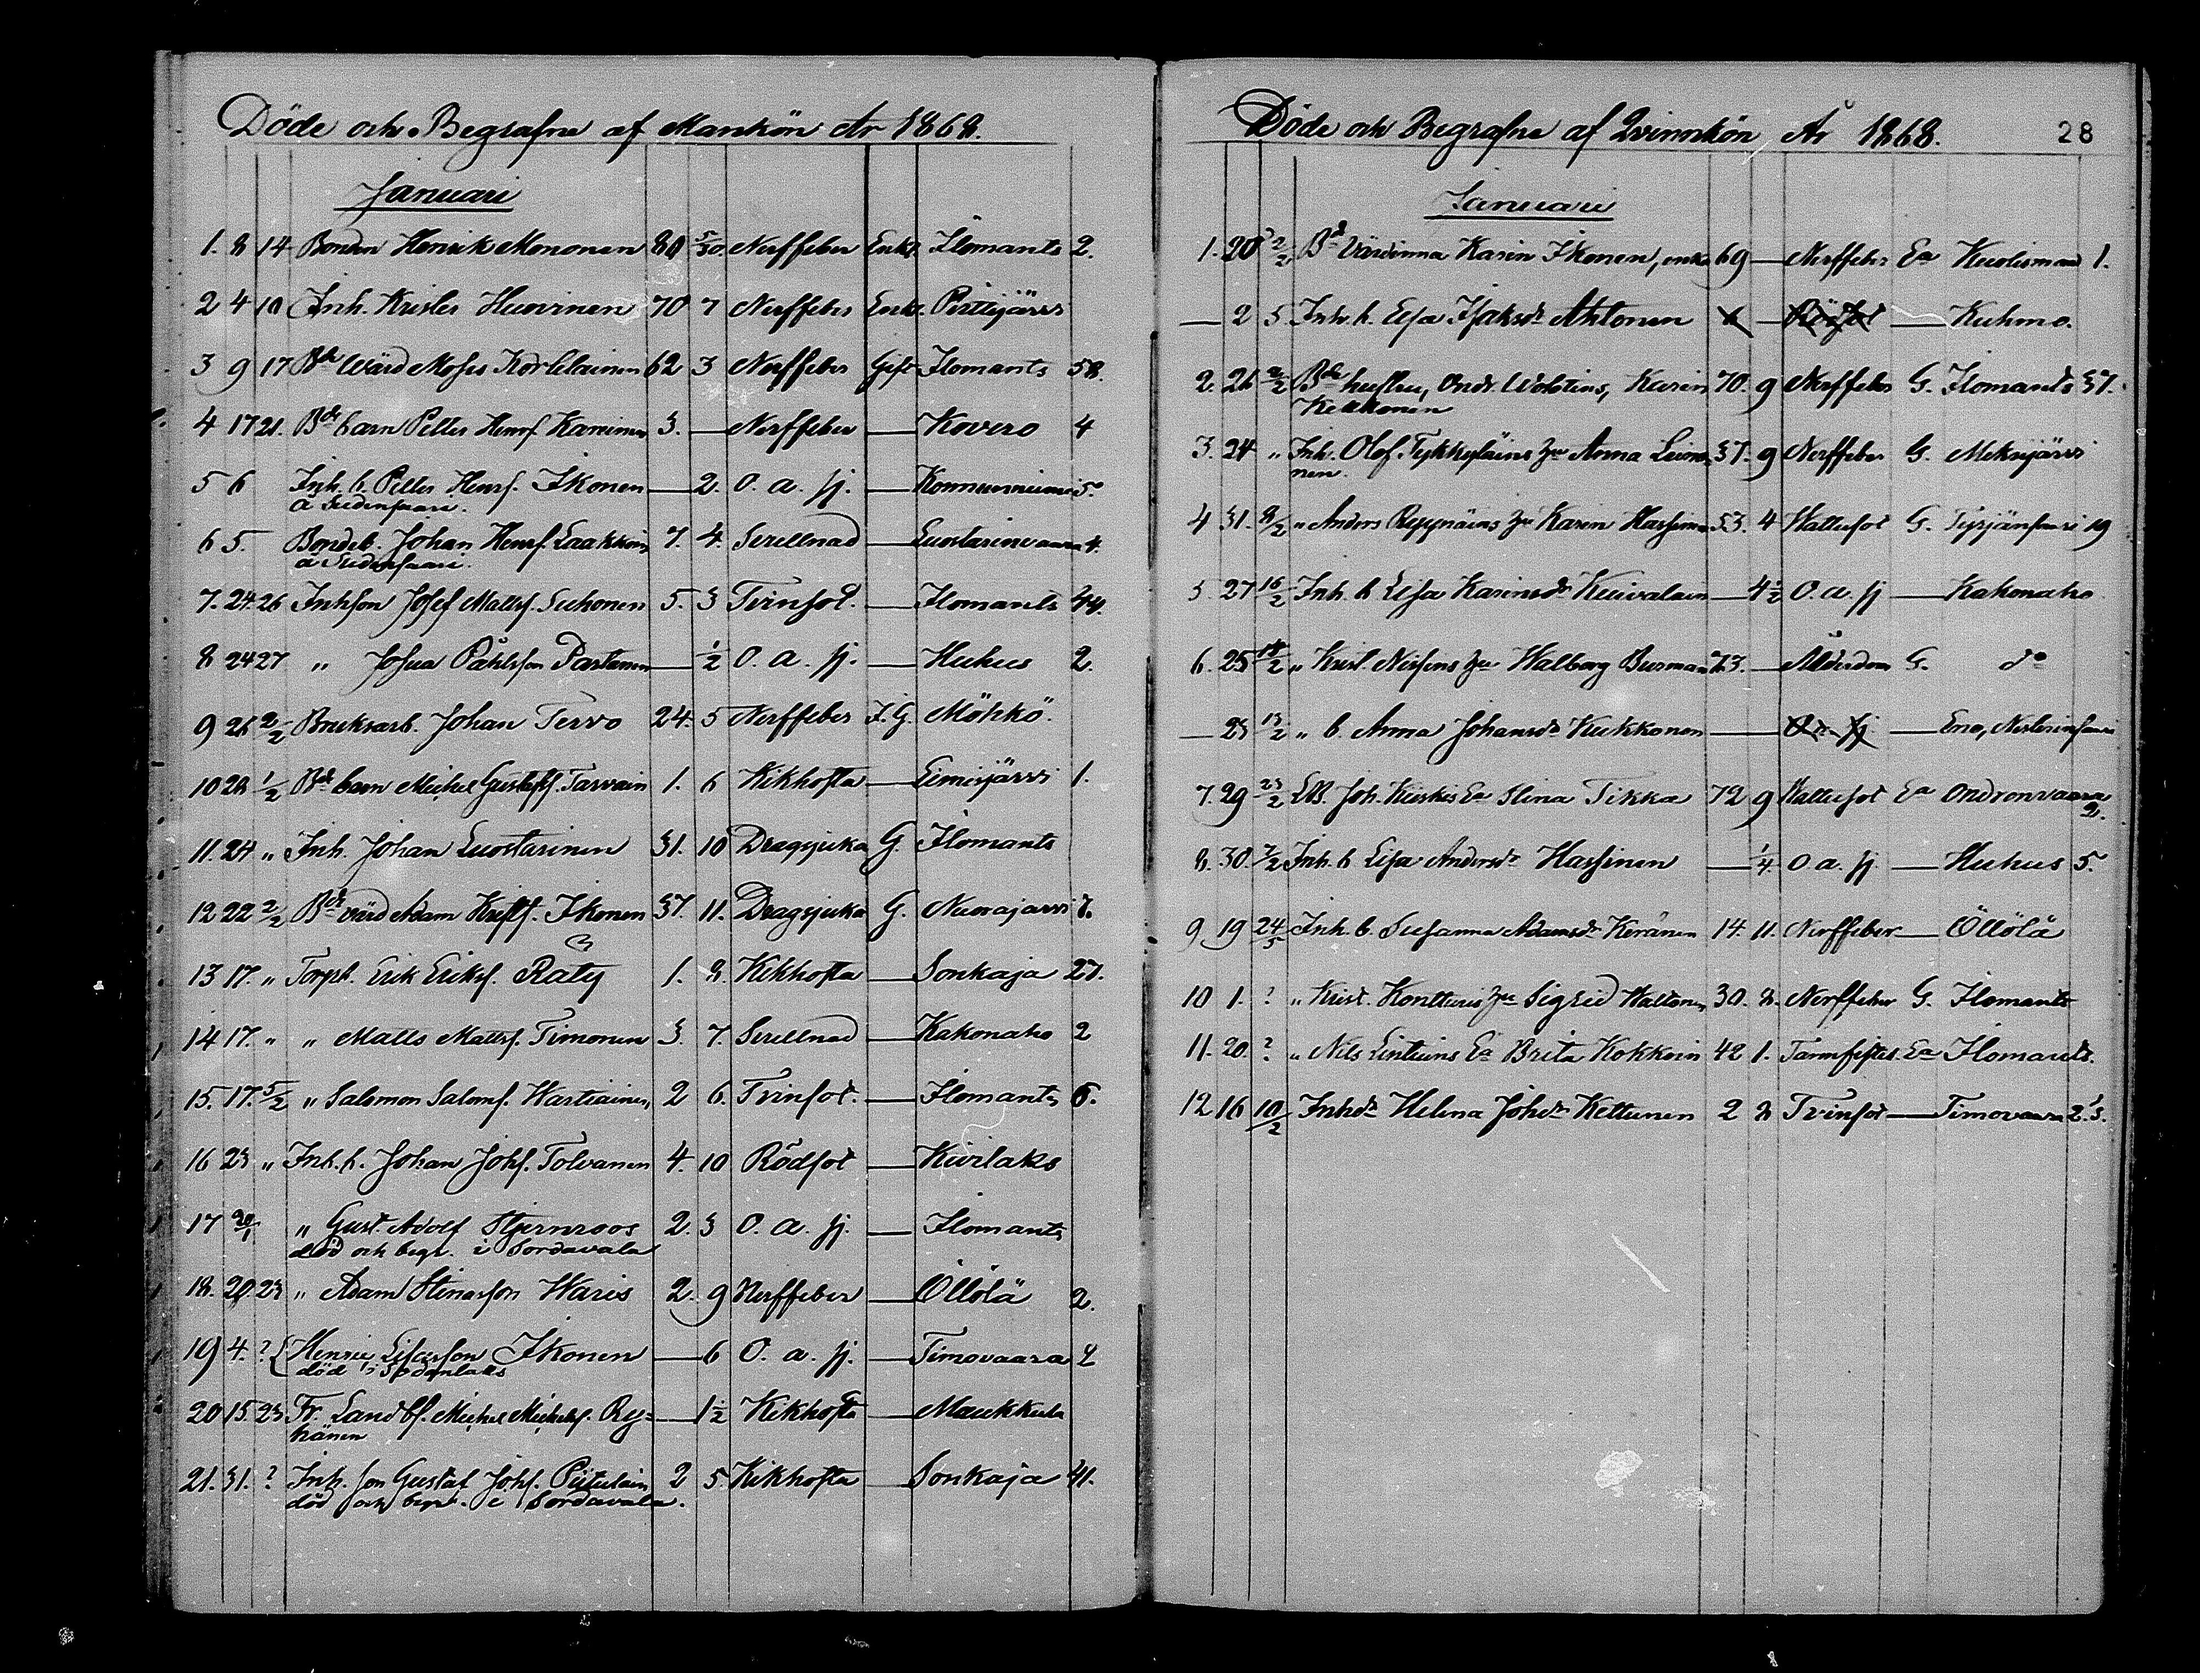 Döde och Begrafne af Mankön År 1868.
Januari
1. 8 14 Bonden Henrik Mononen 80 5/30. Nerffeber Enkl. Ilomants 2.
2 4 10 Inh. Krister Huovinen 70 7 Nerffeber Enkl. Pirttijärvi
3 9 17 Bde Värd Moses Korlelainen 62 3 Nerffeber Gift Ilomants 58.
4 17 21. Bde barn Petter Henrs. Karvinen 3. — Nerffeber — Kovero 4
5 6 Inh. b. Petter Henrs. Ikonen — 2. O. a. sj. — Konnunniemi 5.
6 5. Bondeb. Johan Henrs. Laakkoin 7. 4. Serellnad — Luostarinvaara 4.
7. 24. 26 Inhson Josef Matts. Suhonen 5. 3 Tvinsot. — Ilomants 44.
8 24 27 " Josua Påhlsson Partanen — 1/2 O. a. sj. — Huhus 2.
9 26 2/2 Bruksarb. Johan Tervo 24. 5 Nerffeber I. G. Möhkö.
10 28 1/2 Bde barn Michel Gustafs. Tarvain 1. 6 Kikhosta — Liimijärvi 1.
11. 24 " Inh. Johan Luostarinen 31. 10 Dragsjuka G. Ilomants
12 22 2/2 Bde värd Adam Krists. Ikonen 37. 11. Dragsjuka G. Nuorajärvi 7.
13 17. " Torpb. Erik Eriks. Räty 1. 8. Kikhosta — Sonkaja 27.
14 17. " " Matts Matts. Timonen 3. 7. Serellnad — Kakonaho 2
15. 17. 5/2 " Salomon Saloms. Wartiainen 2 6. Tvinsot. — Ilomants 6.
16 23 " Inh. b. Johan Johs. Tolvanen 4. 10 Rödsot — Kivilaks
17 20/1 " Gust. Adolf Stjernroos 2. 3 O. a. sj. — Ilomants
död och begr. i Sordavala
18. 20 23 " Adam Stinasson Waris 2. 9 Nerffeber — Öllölä 2.
19 4. ? Henric Lisasson Ikonen — 6 O. a. sj. — Timovaara 4
död i
20 15 23 Fr. Landbs. Michel Michels. Ry= — 1 1/2 Kikhosta — Maukkula
hänen
21. 31. ? Inh. son Gustaf Johs. Piitulain 2 5. Kikhosta — Sonkaja 41.
död och begr. i Sordavala.
Döde och Begrafne af Qvinnokön År 1868. 28
Januari
1. 20 2/2 Bde Värdinna Karin Ikonen, enka 69 — Nerffeber Ea Kuolismaa 1.
— 2 5. Inh. b. Elsa Isaksdr Ahtonen — Kuhmo.
2. 26 2/2 Bde hustru, Karin 70. 9 Nerffeber G. Ilomants 37.
Kekkonen
3. 24 " Inh. Olof Tykkyläins hu Anna Leino 37. 9 Nerffeber G. Mekrijärvi
nen.
4 31. 8/2 " Anders Reppnäins hu Karin Hassinen 53. 4 Hattusot G. Tyrjänsaari 19
5. 27 16/2 Inh. b Lisa Karinsdr Kuivalain — 4 1/2 O. a. sj — Kakonaho
6. 25 18/2 " Krist. Nissins hu Walborg Burman 73. — Ålderdom G. do
— 23 13/2 " b. Anna Johansdr Kukkonen — — Eno,
7. 29 23/2 Joh. Kiiskis Ea Stina Tikka 72 9 Hattusot Ea Ondronvaara
2.
8. 30. 7/2 Inh. b Lisa Andersdr Hassinen — 1/4. O a. sj. — Huhus 5.
9 19 24/5 Inh. b. Susanna Adamsdr Keränen 14. 11. Nerffeber — Öllölä
10 1. ? " Krist. Kontturis hu Sigrid Waltonen 30. 8. Nerffeber G. Ilomants
11. 20. ? " Nils Lintuins Ea Brita Kokkoin 42 1. Ea Ilomants.
12 16 10/2 Inhdr Helena Johdr Kettunen 2 8 Tvinsot — Timovaara 2.